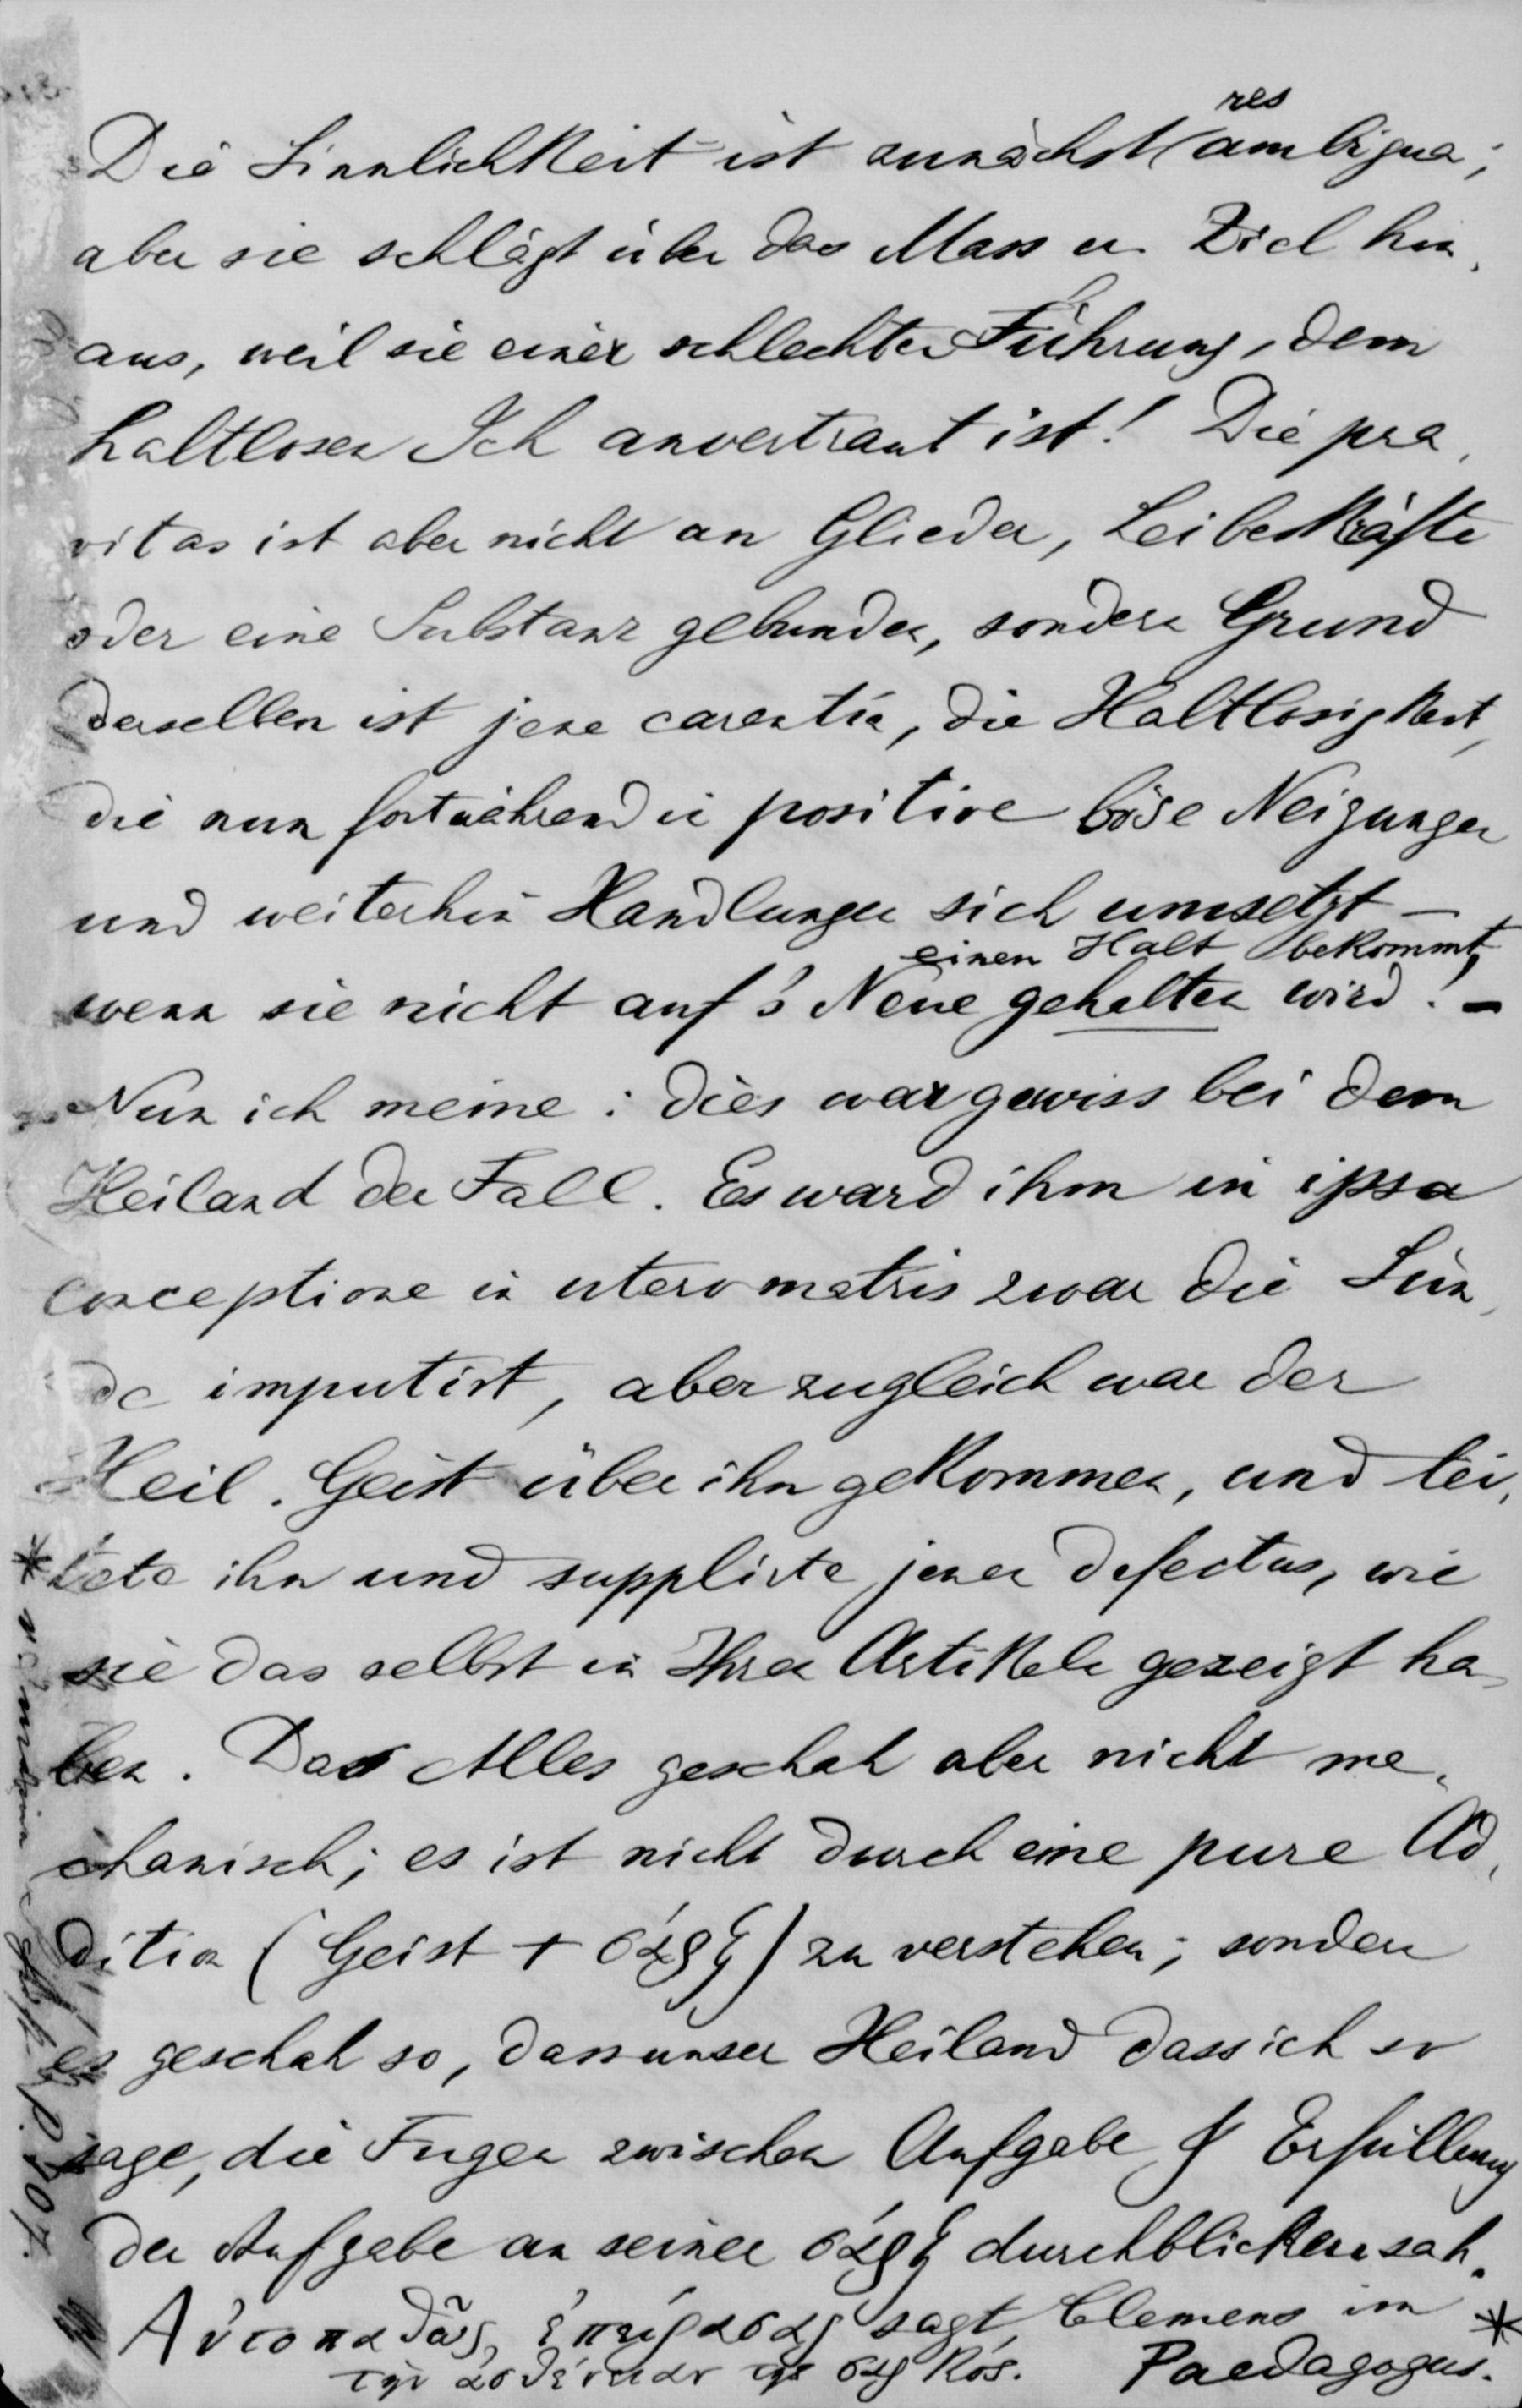 res
Die Sinnlichkeit ist zunächst ambigua;
aber sie schlägt über das Mass u. Ziel hin,
aus, weil sie einer schlechten Führung, dem
haltlosen Ich anvertraut ist! Die pra,
vitas ist aber nicht an Glieder, Leibeskräfte
oder eine Substanz gebunden, sondern Grund
derselben ist jene carentia, die Haltlosigkeit,
die nun fortwährend in positive böse Neigungen
und weiterhin Handlungen sich umsetzt –
einen Halt bekommt,
wenn sie nicht auf's Neue gehalten wird! –
Nun ich meine: dies war gewiss bei dem
Heiland der Fall. Es ward ihm in ipsa
conceptione in utero matris zwar die Sün,
de imputirt, aber zugleich war der
Heil. Geist über ihn gekommen, und lei,
tete ihn und supplirte jenen defectus, wie
sie das selbst in Ihren Artikeln gezeigt ha,
ben. Das Alles geschah aber nicht me,
chanisch; es ist nicht durch eine pure Ad,
dition (Geist + σάρξ) zu verstehen; sondern
es geschah so, dass unser Heiland dass ich so
sage, die Fugen zwischen Aufgabe & Erfüllung
der Aufgabe an seiner σάρξ durchblicken sah.
Αὐτοπαθῶς ἐπείρασας sagt Clemens im *
τὴν ἀσθένειαν τῆς σαρκός. Paedagogus.
*
p. 107.